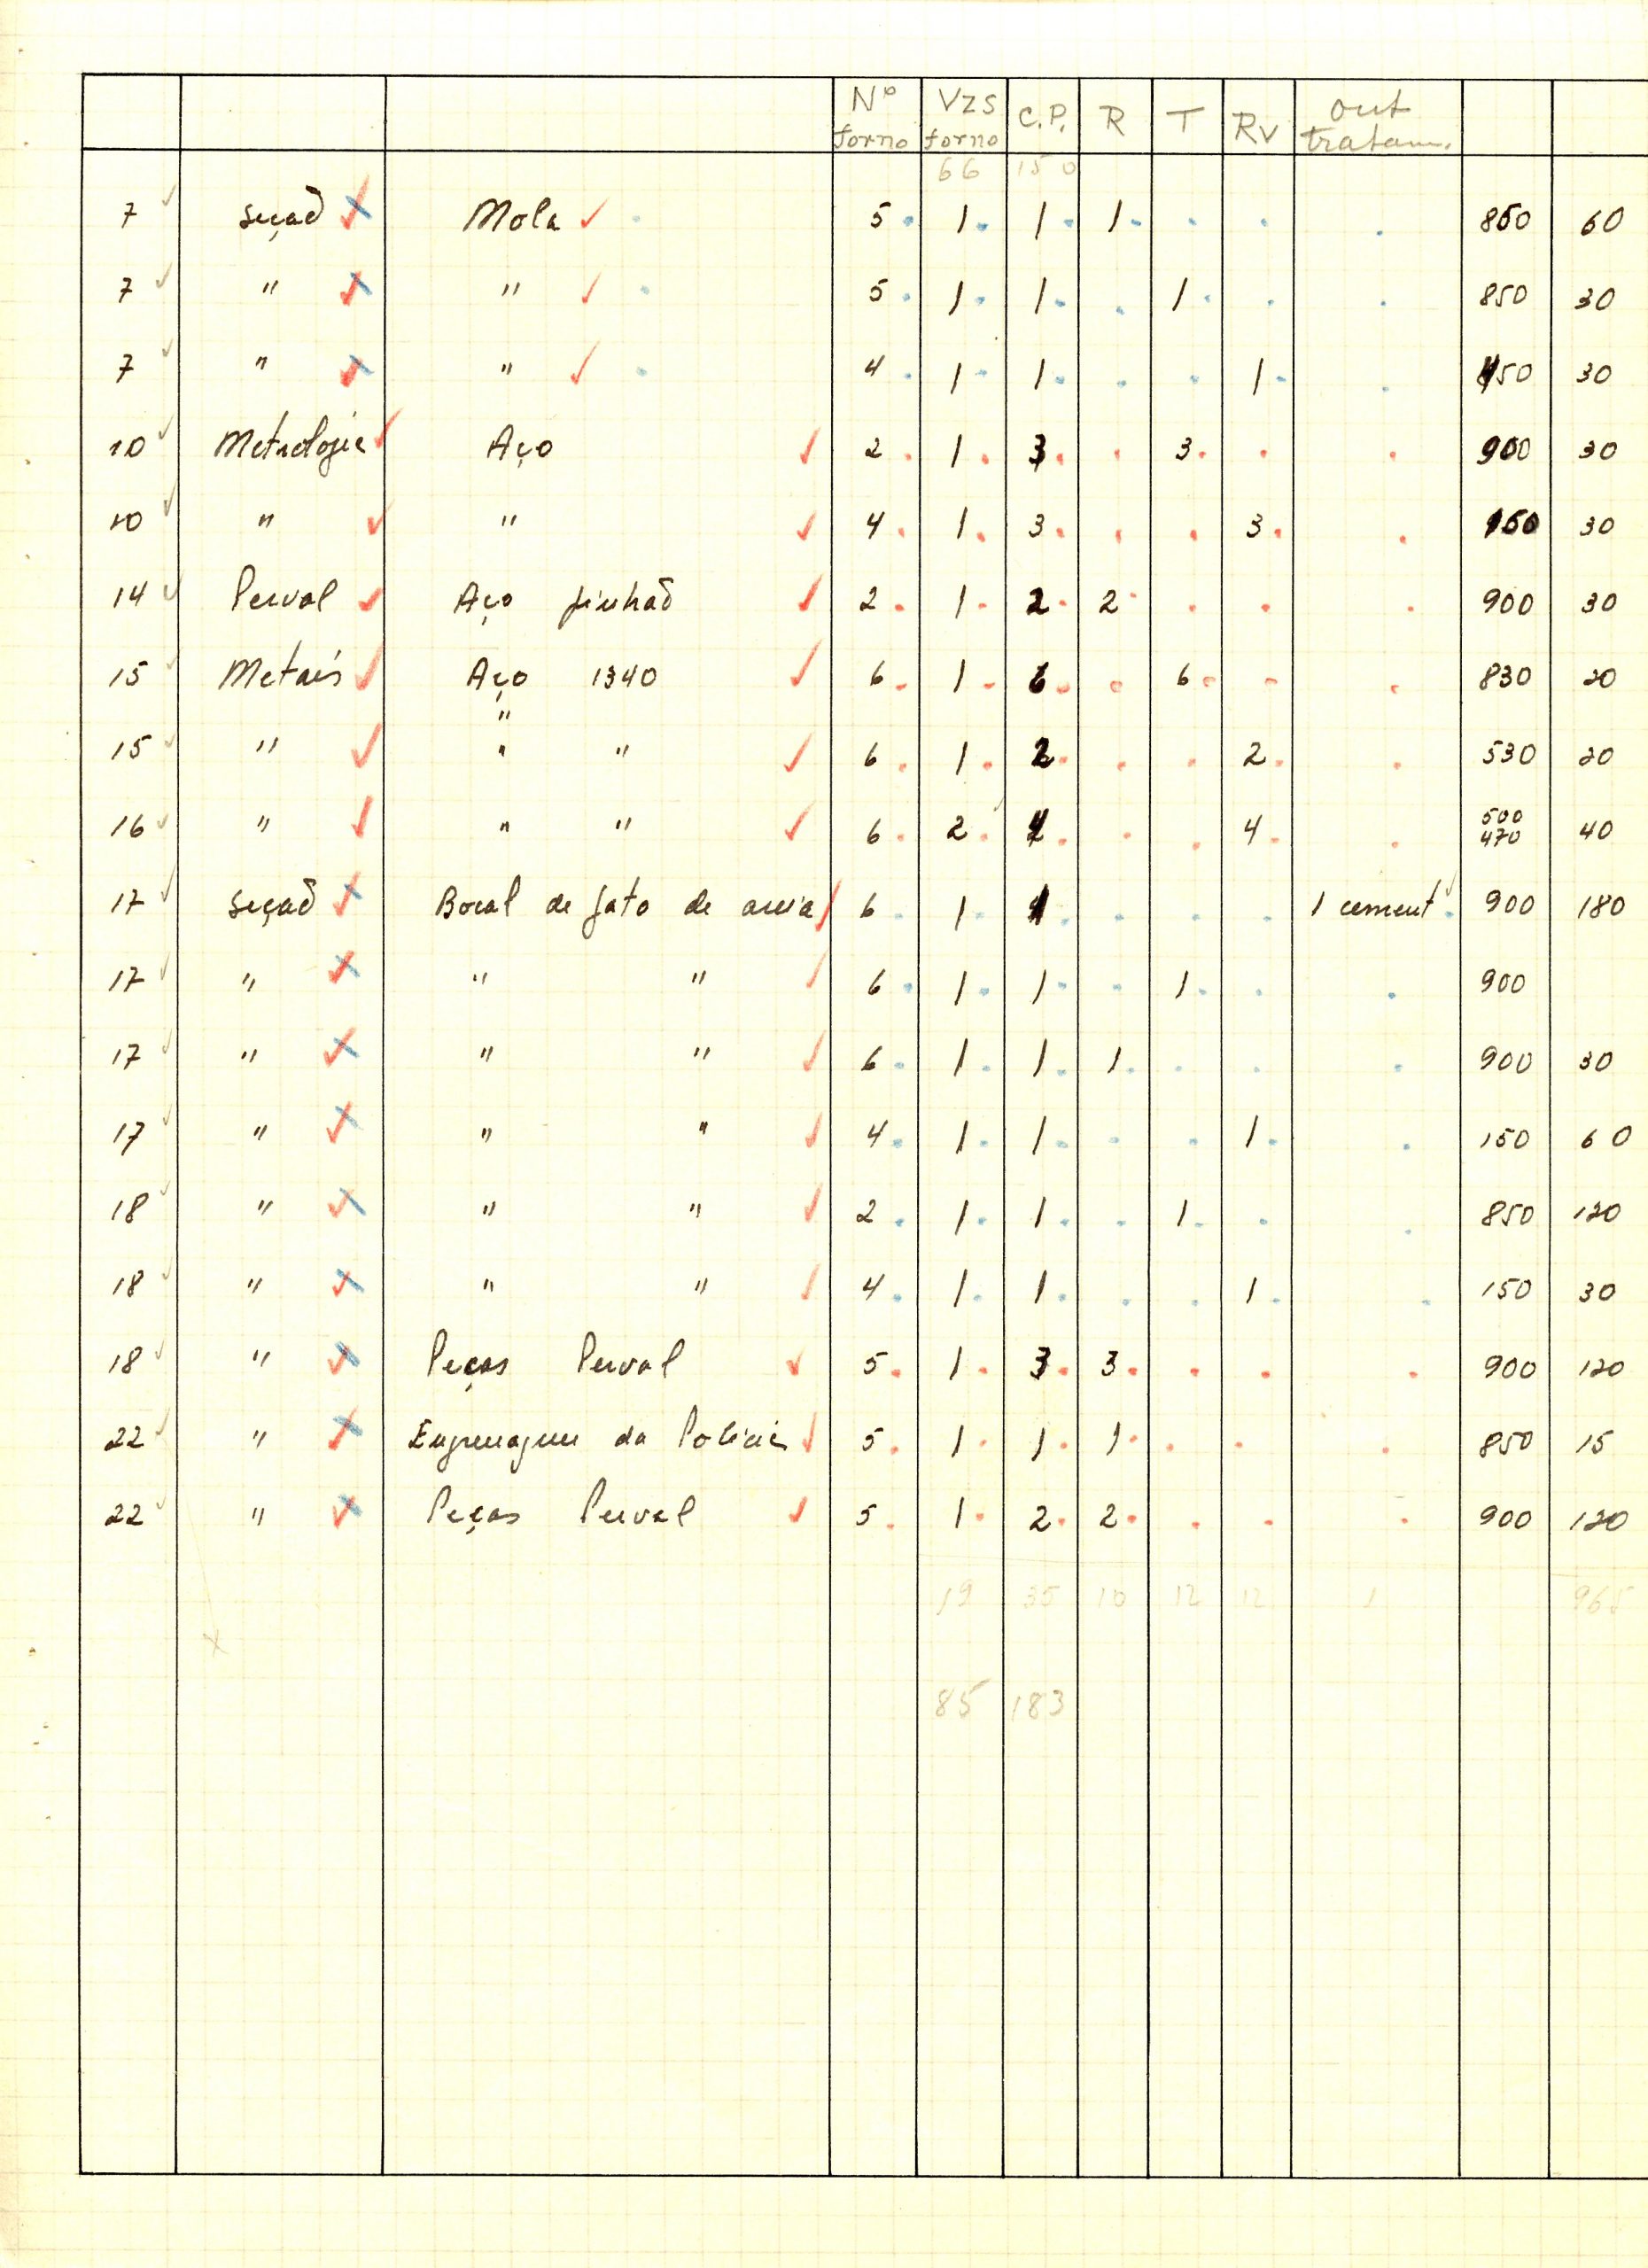 Nº forno VZS forno C.P. R T Rv out tratam.
66 150
7 seção Mola 5 1 1 1 850 60
7 " " 5 1 1 1 850 30
7 " " 4 1 1 1 450 30
10 Metrologia Aço 2 1 3 3 900 30
10 " " 4 1 3 3 150 30
14 Perval Aço pinhão 2 1 2 2 900 30
15 Metais Aço 1340 6 1 6 6 830 20
"
15 " " " 6 1 2 2 530 20
16 " " " 6 2 4 4 500 470 40
17 seção Bocal de jato de areia 6 1 1 1 cement 900 180
17 " " " 6 1 1 1 900
17 " " " 6 1 1 1 900 30
17 " " " 4 1 1 1 150 60
18 " " " 2 1 1 1 850 120
18 " " " 4 1 1 1 150 30
18 " Peças Perval 5 1 3 3 900 120
22 " Engrenagem da Policia 5 1 1 1 850 15
22 " Peças Perval 5 1 2 2 900 120
19 35 10 12 12 1 965
85 183